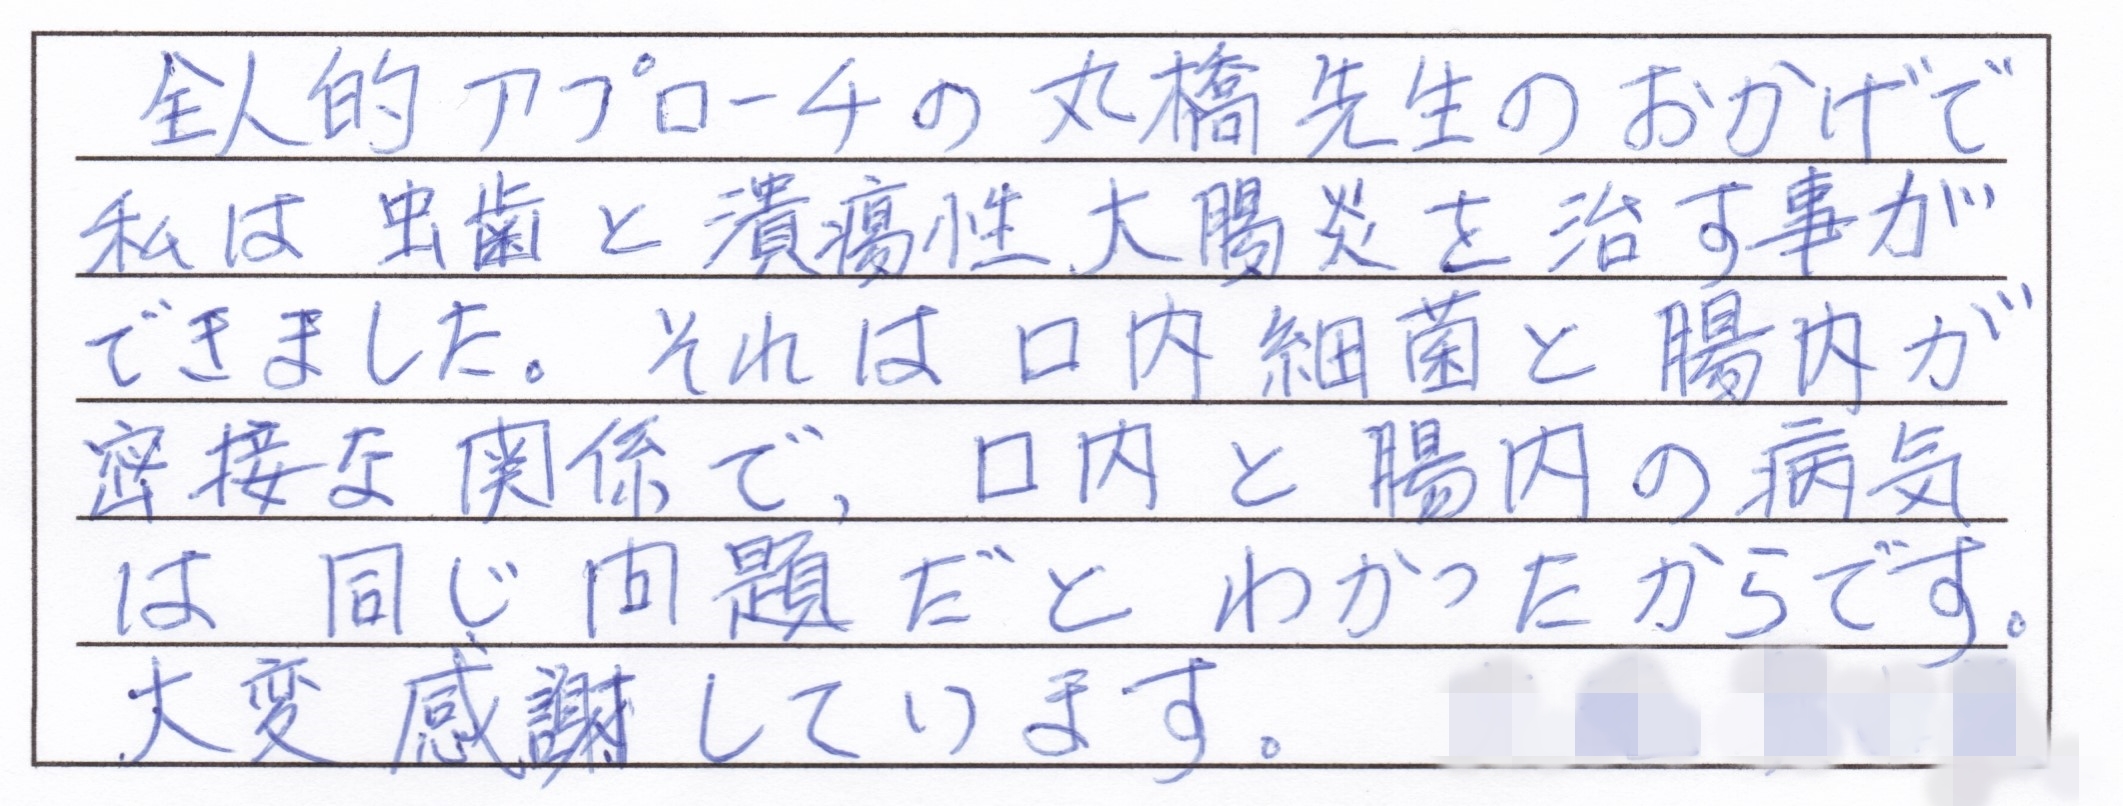 全人的アプローチの丸橋先生のおかげで
私は虫歯と潰瘍性大腸炎を治す事が
できました。それは口内細菌と腸内が
密接な関係で、口内と腸内の病気
は同じ問題だとわかったからです。
大変感謝しています。